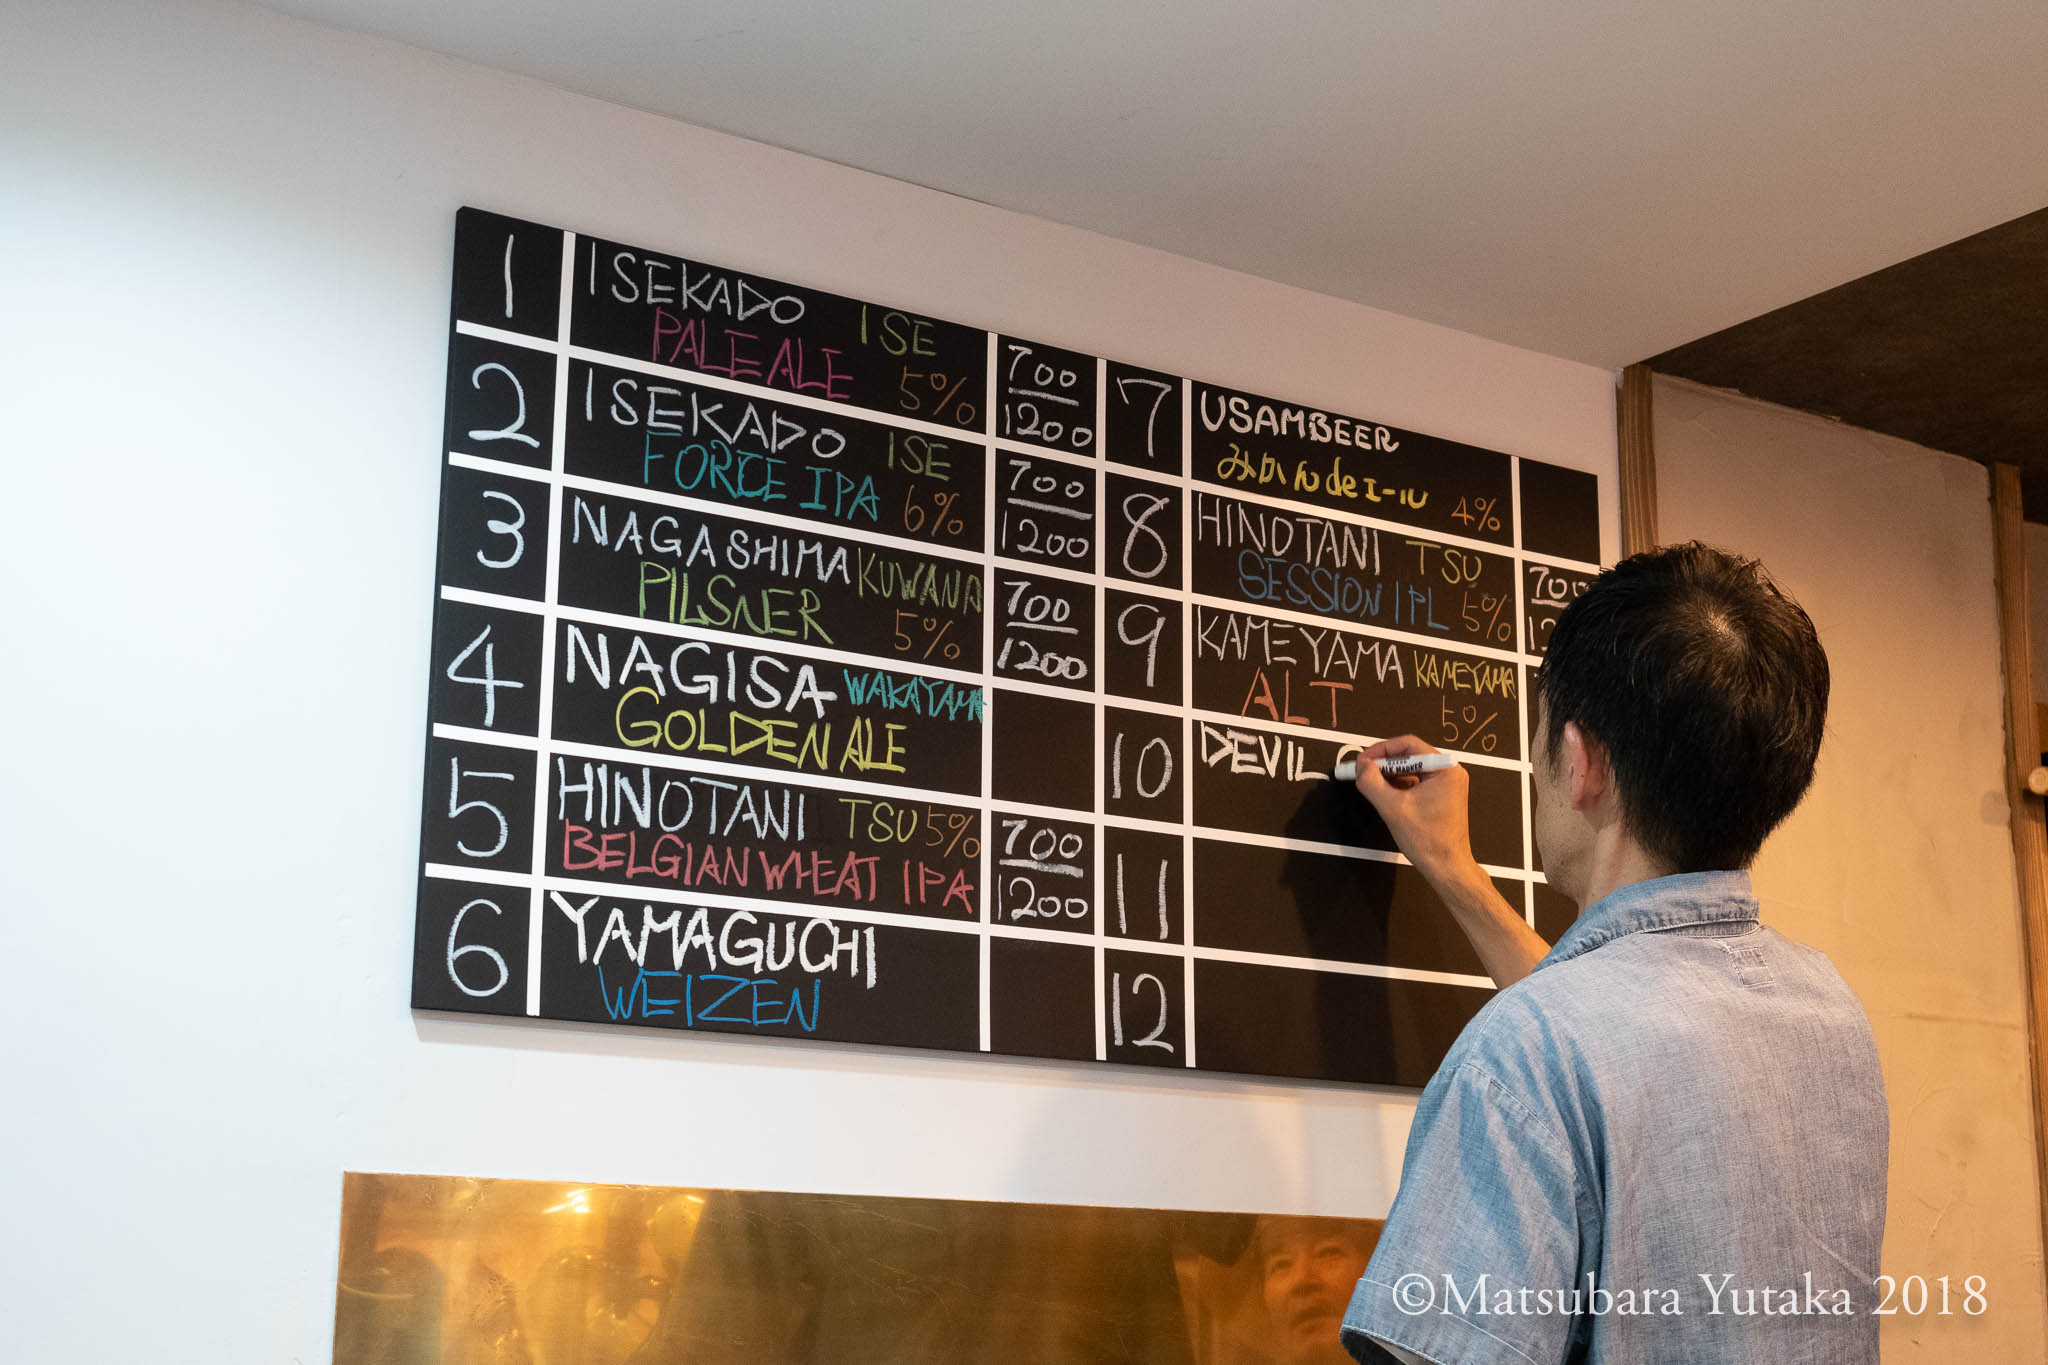 1
ISEKADO ISE
PALE ALE 5%
700
1200
2
ISEKADO ISE
FORCE IPA 6%
700
1200
3
NAGASHIMA KUWANA
PILSNER 5%
700
1200
4
NAGISA WAKAYAMA
GOLDEN ALE
5
HINOTANI TSU 5%
BELGIAN WHEAT IPA
700
1200
6
YAMAGUCHI
WEIZEN
7
USAMBEER
みかんdeエール 4%
8
HINOTANI TSU
SESSION IPL 5%
700
9
KAMEYAMA KAMEYAMA
ALT 5%
10
DEVIL
11
12
©Matsubara Yutaka 2018